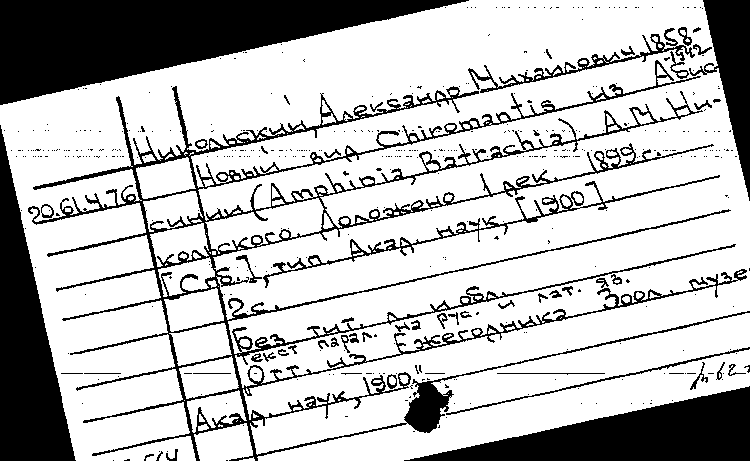 Никольский, Александр Михайлович, 1858-
1942
Новый вид Chiromantis из Абис-
20.61.4.76
синии (Amphibia, Batrachia). А.М. Ни-
кольского. Доложено 1 дек. 1899 г.
[Спб.], тип. Акад. наук, [1900].
2 с.
Без тит. л. и обл.
Текст парал. на рус. и лат. яз.
"Отт. из Ежегодника Зоол. музе
Акад. наук, 1900."